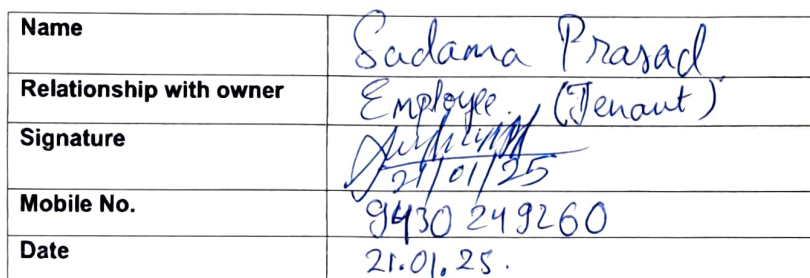 Name Sadama Prasad
Relationship with owner Employee. (Tenant)
Signature
21/01/25
Mobile No. 9430 249260
Date 21.01.25.